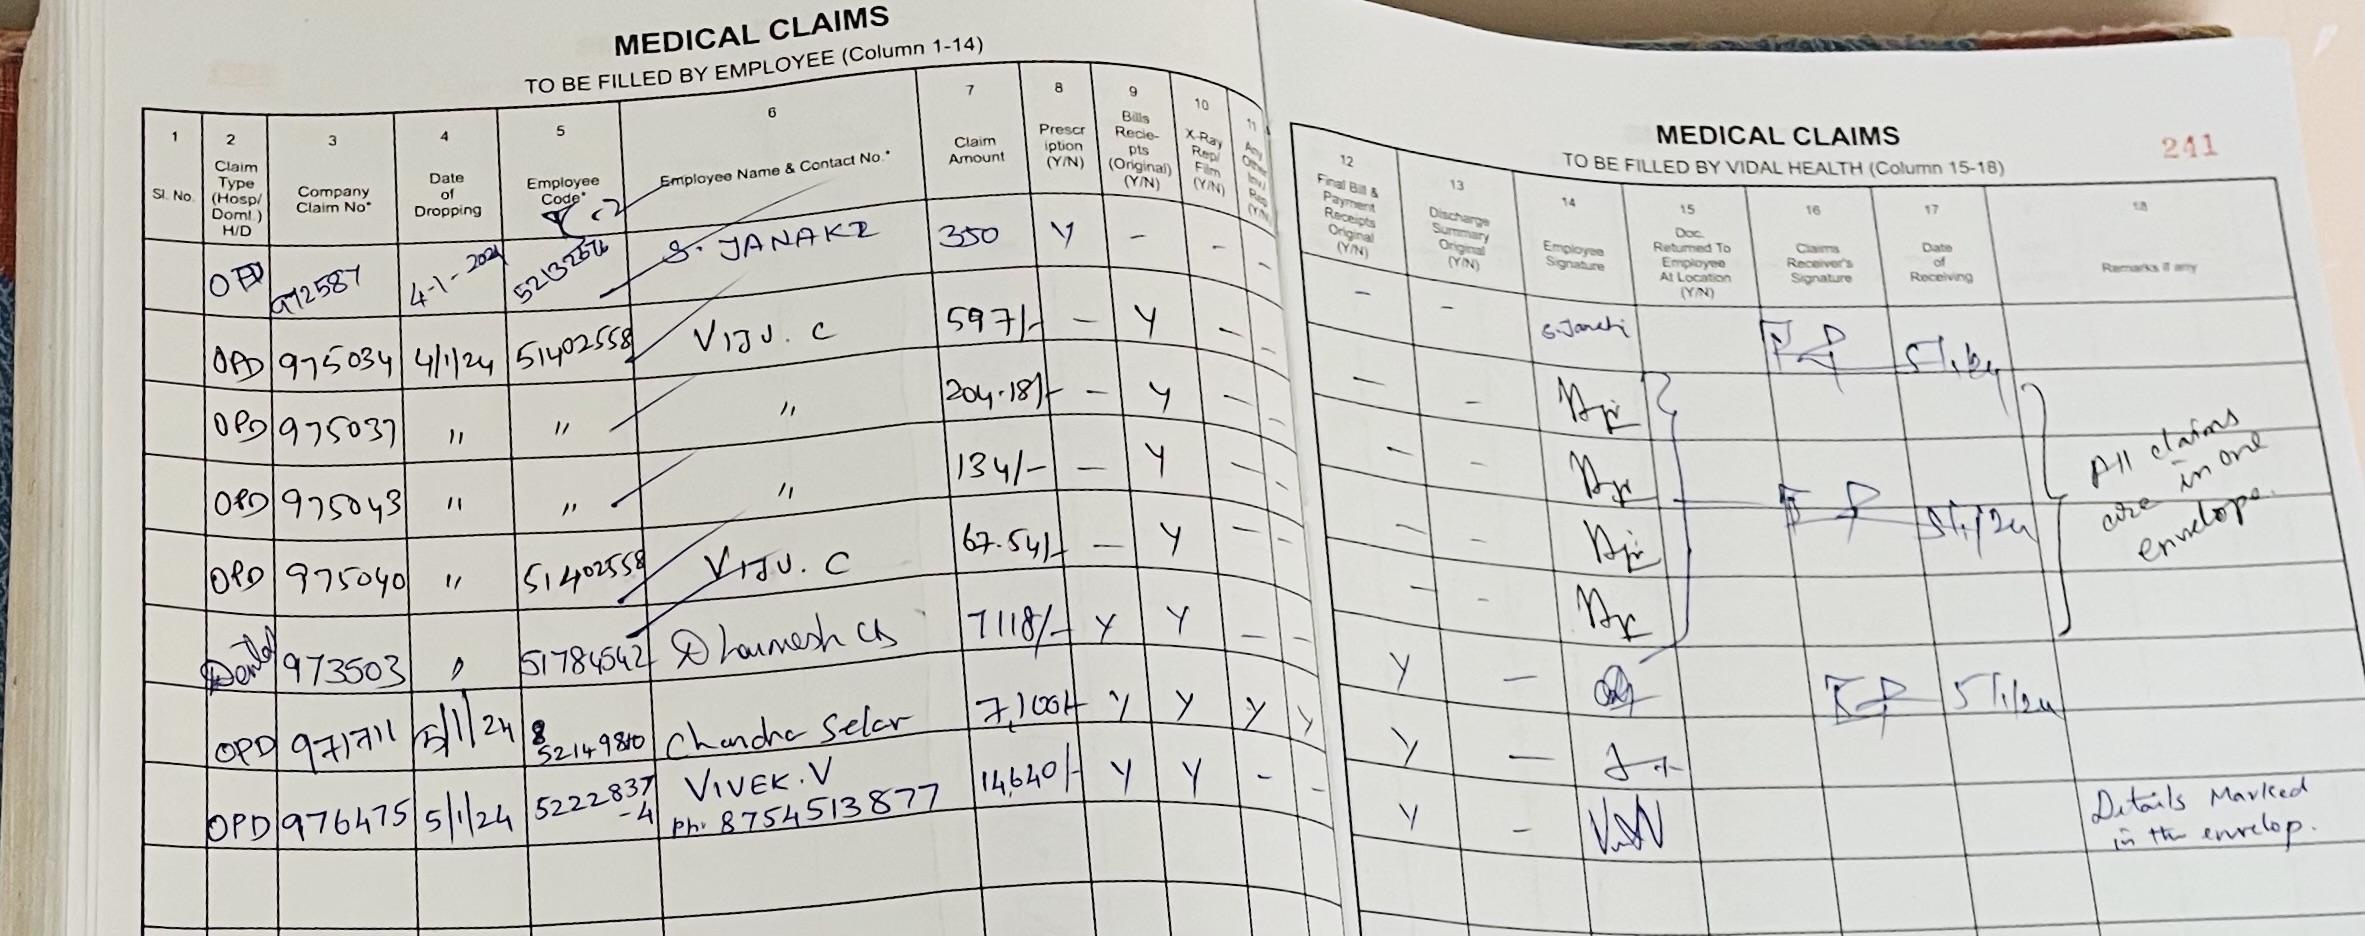 MEDICAL CLAIMS
TO BE FILLED BY EMPLOYEE (Column 1-14)
1 Sl. No.
2 Claim Type (Hosp/ Doml.) H/D
3 Company Claim No*
4 Date of Dropping
5 Employee Code*
6 Employee Name & Contact No.*
7 Claim Amount
8 Prescription (Y/N)
9 Bills Recie-pts (Original) (Y/N)
10 X-Ray Rep/ Film (Y/N)
11 Any Other Inv./ Rep (Y/N)
OPD 972587 4-1-2024 S. JANAKI 350 Y - - -
OPD 975034 4/1/24 51402558 VIJU. C 597/- - Y - -
OPD 975037 " " " 204.18/- - Y - -
OPD 975043 " " " 134/- - Y - -
OPD 975040 " 51402558 VIJU. C 67.54/- - Y - -
Dental 973503 " 51784542 7118/- Y Y - -
OPD 971711 5/1/24 52149810 Chandra Selar 7,100/- Y Y Y Y
OPD 976475 5/1/24 5222837-4 VIVEK. V 14,640/- Y Y - -
Ph: 8754513877
MEDICAL CLAIMS
241
TO BE FILLED BY VIDAL HEALTH (Column 15-18)
12 Final Bill & Payment Receipts Original (Y/N)
13 Discharge Summary Original (Y/N)
14 Employee Signature
15 Doc. Returned To Employee At Location (Y/N)
16 Claims Receiver's Signature
17 Date of Receiving
18 Remarks if any
- - S. Janaki 5/1/24
- -
- - 5/1/24 All claims
- - are in one
- - envelope.
Y - 5/1/24
Y -
Y - Details Marked
in the envelop.